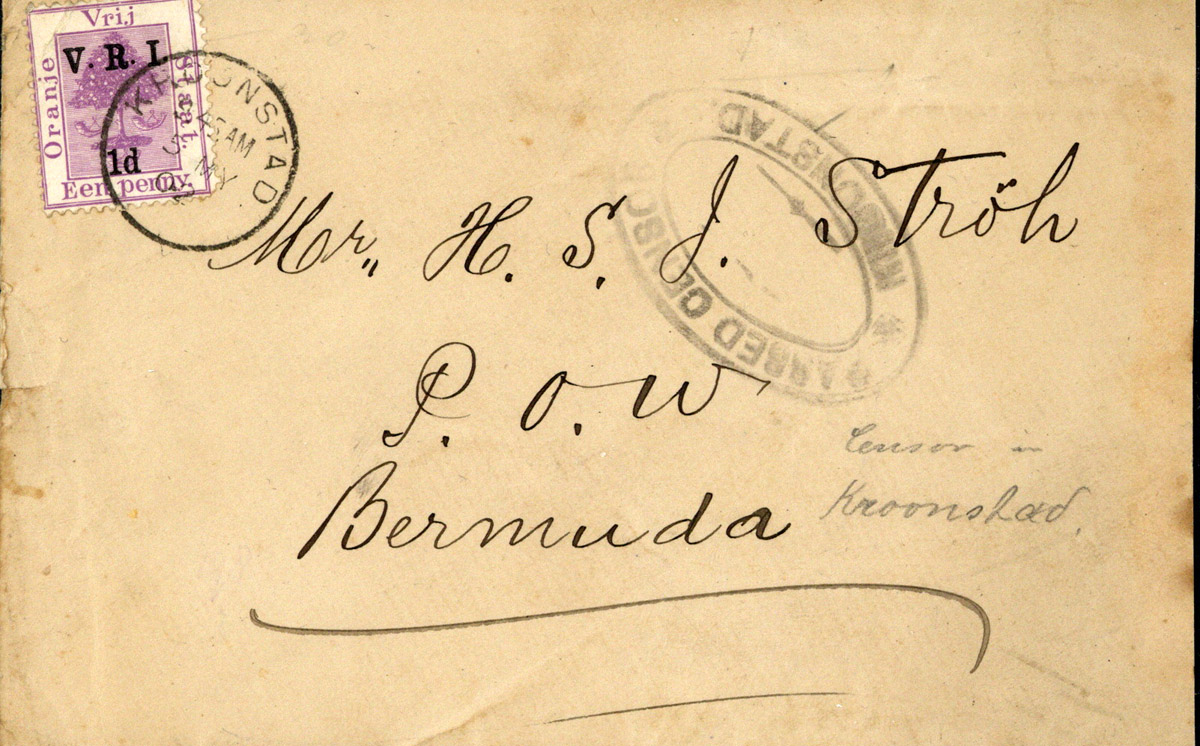 Vrij
Oranje
Staat.
V. R. I.
1d
Een penny.
KROONSTAD
AM
MY
PASSED CENSOR
KROONSTAD.
Mr,, H. S. J. Ströh
P. O. W
Bermuda
Censor in
Kroonstad.